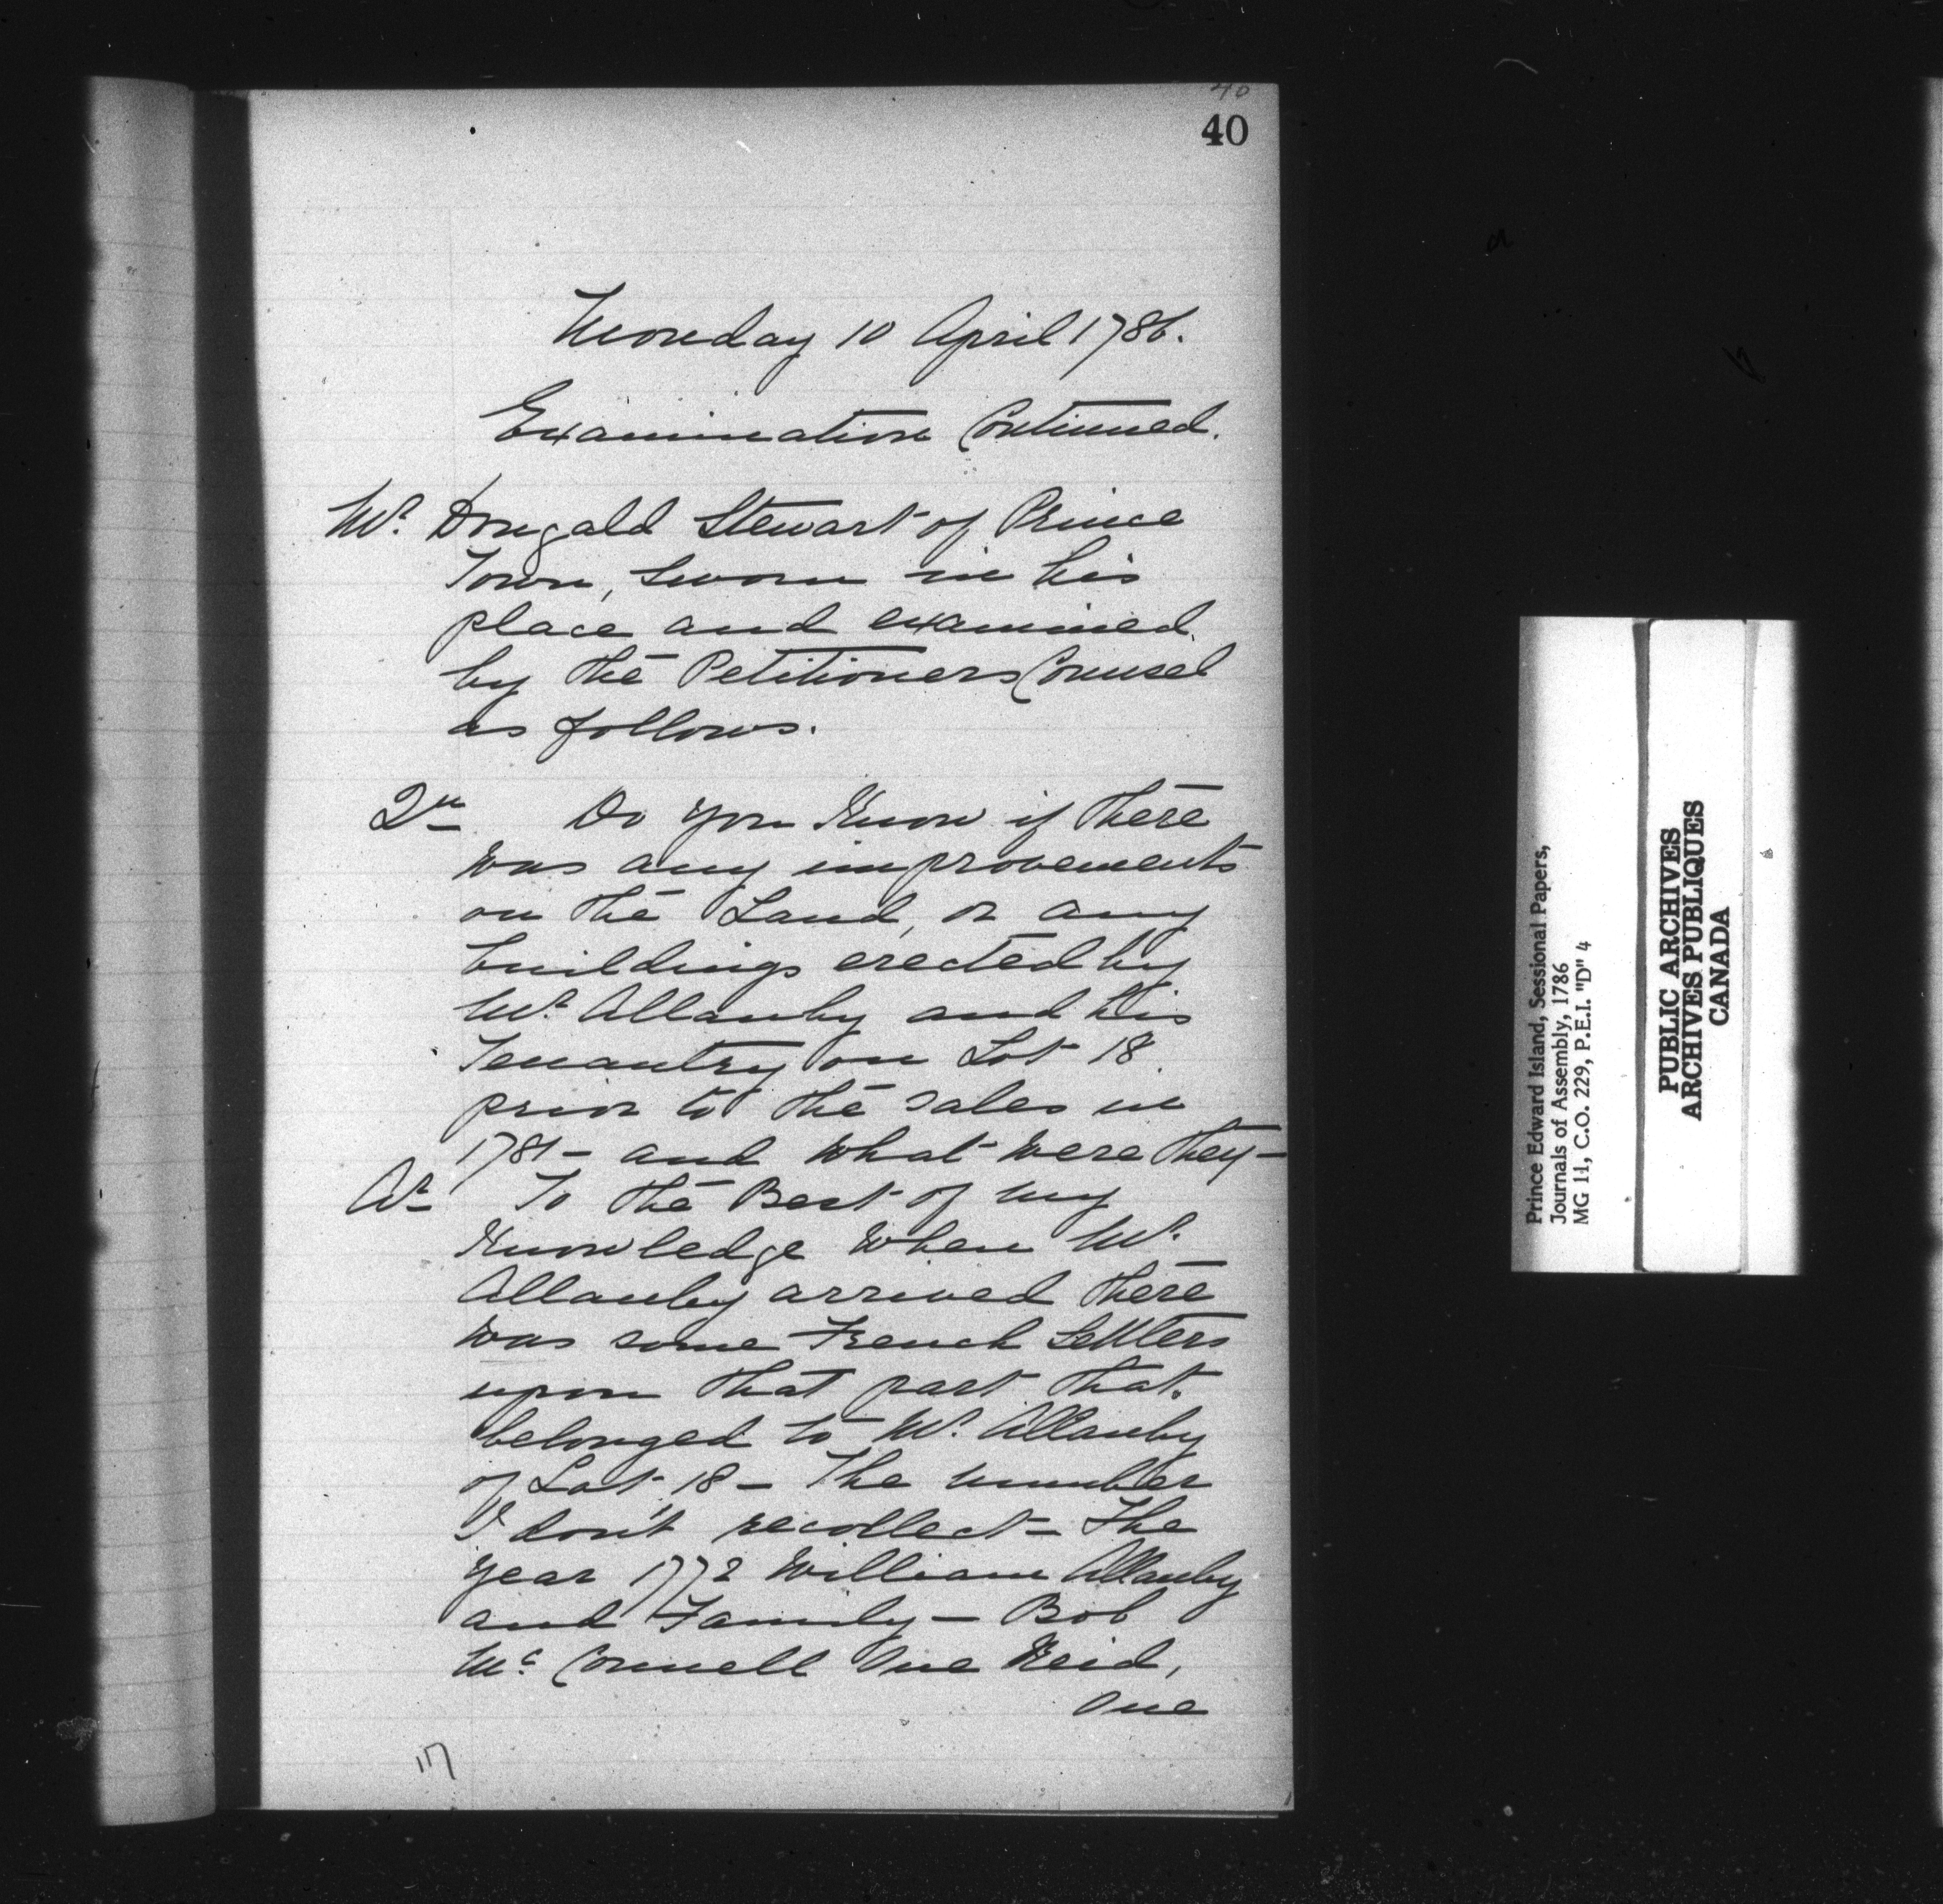 40
40
Monday 10 April 1786.
Examination Continued.
Mr. Dougald Stewart of Prince
Town, sworn in his
place and examined
by the Petitioners Counsel
as follows.
Qu Do you Know if there
was any improvements
on the Land, or any
buildings erected by
Mr. Allanby and his
Tenantry on Lot 18
prior to the sales in
1781 - and what were they -
Ar To the Best of my
Knowledge when Mr.
Allanby arrived there
was some French Settlers
upon that part that
belonged to Mr. Allanby
of Lot 18 - The number
I don't recollect - The
year 1772 William Allanby
and Family - Bob
Mc Connell One Reid,
One
117
Prince Edward Island, Sessional Papers,
Journals of Assembly, 1786
MG 11, C.O. 229, P.E.I. "D" 4
PUBLIC ARCHIVES
ARCHIVES PUBLIQUES
CANADA